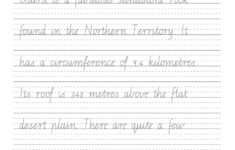 is a fabulous sandstone rock
found in the Northern Territory. It
has a circumference of 9.4 kilometres.
Its roof is 348 metres above the flat
desert plain. There are quite a few